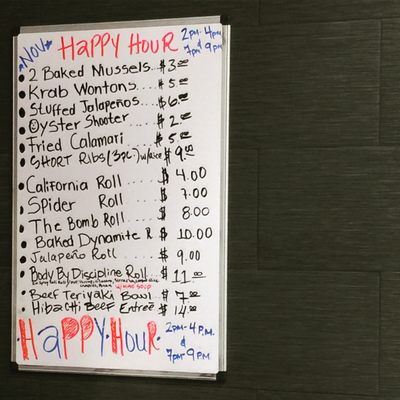 Nov Happy Hour 2pm-4pm & 7pm 9pm
2 Baked Mussels... $3.00
Krab Wontons... $5.00
Stuffed Jalapeños... $6.00
Oyster Shooter $2.00
Fried Calamari $5.00
Short Ribs (3pc) w/rice $9.00
California Roll $4.00
Spider Roll $7.00
The Bomb Roll $8:00
Baked Dynamite R $10.00
Jalapeño Roll $9.00
Body By Discipline Roll... $11.00
Beef Teriyaki Bowl $7.00
Hibachi Beef Entreé $14.00
Happy Hour 2pm-4 P.M. & 7pm 9 PM